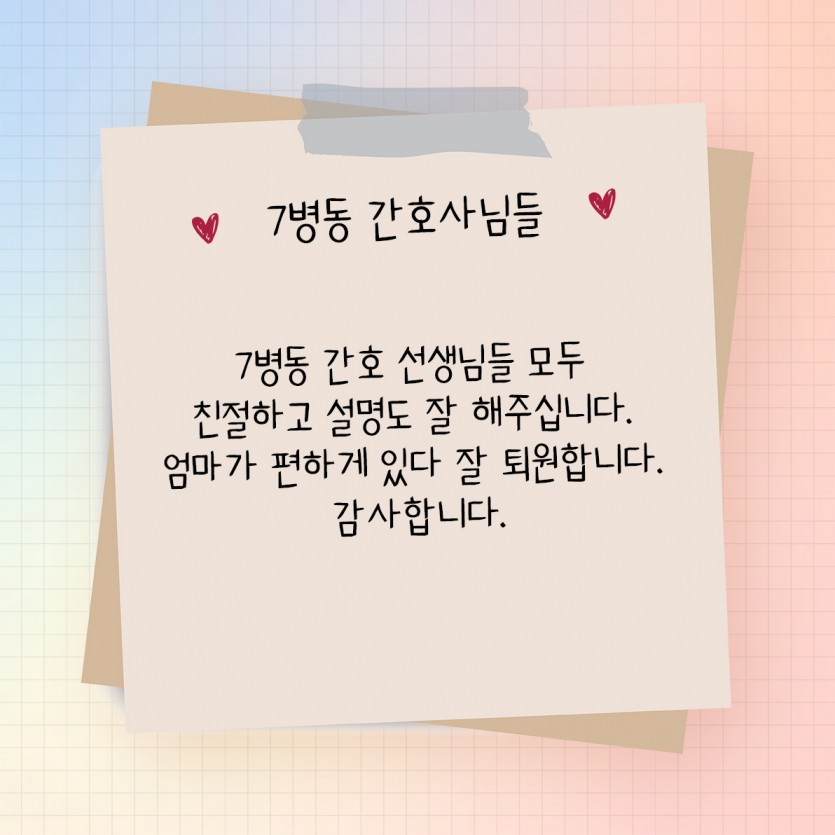 7병동 간호사님들
7병동 간호 선생님들 모두
친절하고 설명도 잘 해주십니다.
엄마가 편하게 있다 잘 퇴원합니다.
감사합니다.